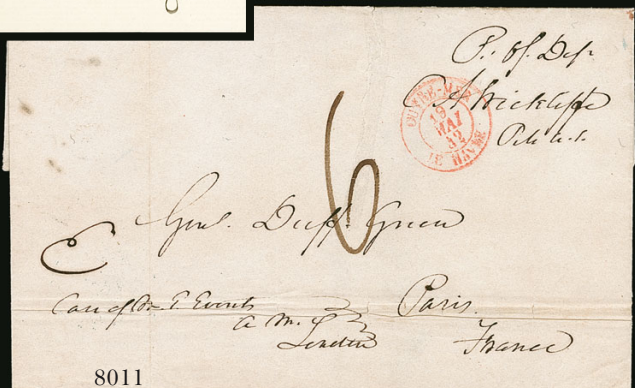 P. Of. Dep
C A Wickliffe
P.M.G.
OUTRE-MER
19
MAI
42
LE HAVRE
6
Genl. Duff Green
Care of Mr. E Everett
A. M.
London
Paris
France
8011